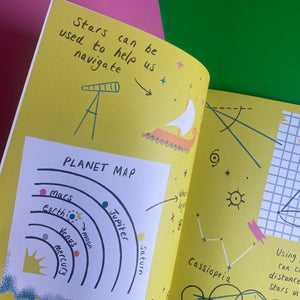 Stars can be
used to help us
navigate
PLANET MAP
Mars
earth
moon
Venus
Mercury
Jupiter
Saturn
Cassiopeia
Using
can c
distan
Stars in